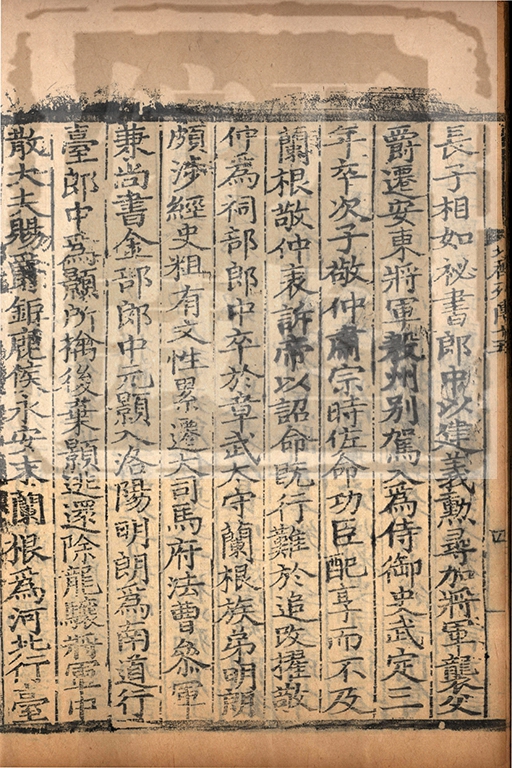 長子相如秘書郎中以建義勲尋加將軍襲父
爵遷安東將軍殷州别駕入為侍御史武定三
年卒次子敬仲肅宗時佐命功臣配享而不及
蘭根敬仲表訴帝以詔命既行難於追攺擢敬
仲為祠部郎中卒於章武太守蘭根族弟明朗
頗渉經史粗有文性累遷大司馬府法曹叅軍
兼尚書金部郎中元顥入洛陽明朗為南道行
臺郎中為顥所擒後棄顥逃還除龍驤將軍中
散大夫賜爵鈃鹿侯永安末蘭根為河北行臺
四